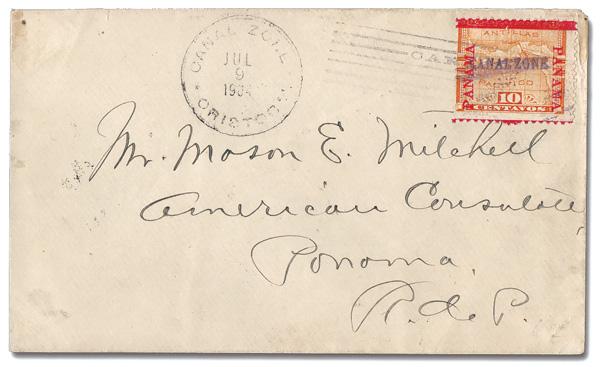 CANAL ZONE
JUL
9
1904
CRISTOBAL
CAN
ANTILLAS
PANAMA
CANAL ZONE
PANAMA
10
CENTAVOS
Mr. Mason E. Mitchell
American Consulate,
Panama,
R. de P.